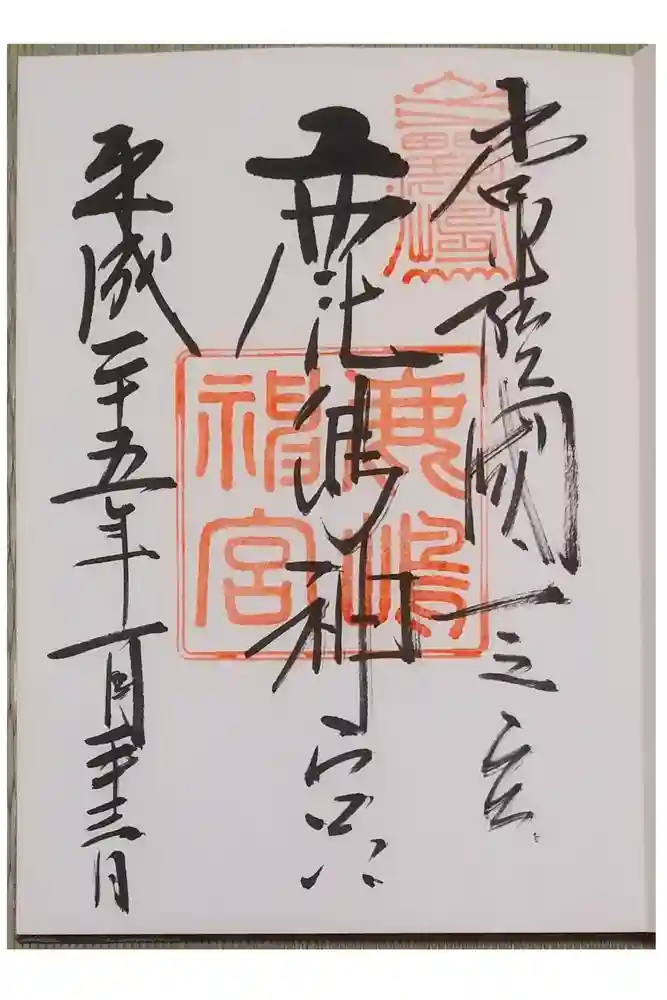 常陸國一之宮
鹿島神宮
鹿嶋
神宮
平成二十五年一月二十三日